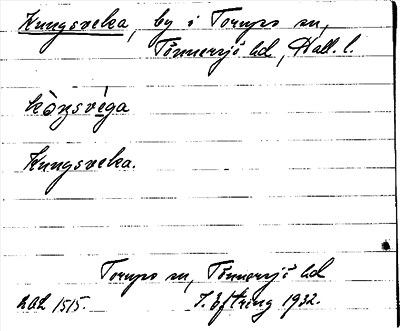 Kungsveka, by i Torups sn,
Tönnersjö hd, Hall. l.
kòŋsvéga
Kungsveka.
Torups sn, Tönnersjö hd
1515. S. Eftring 1932.